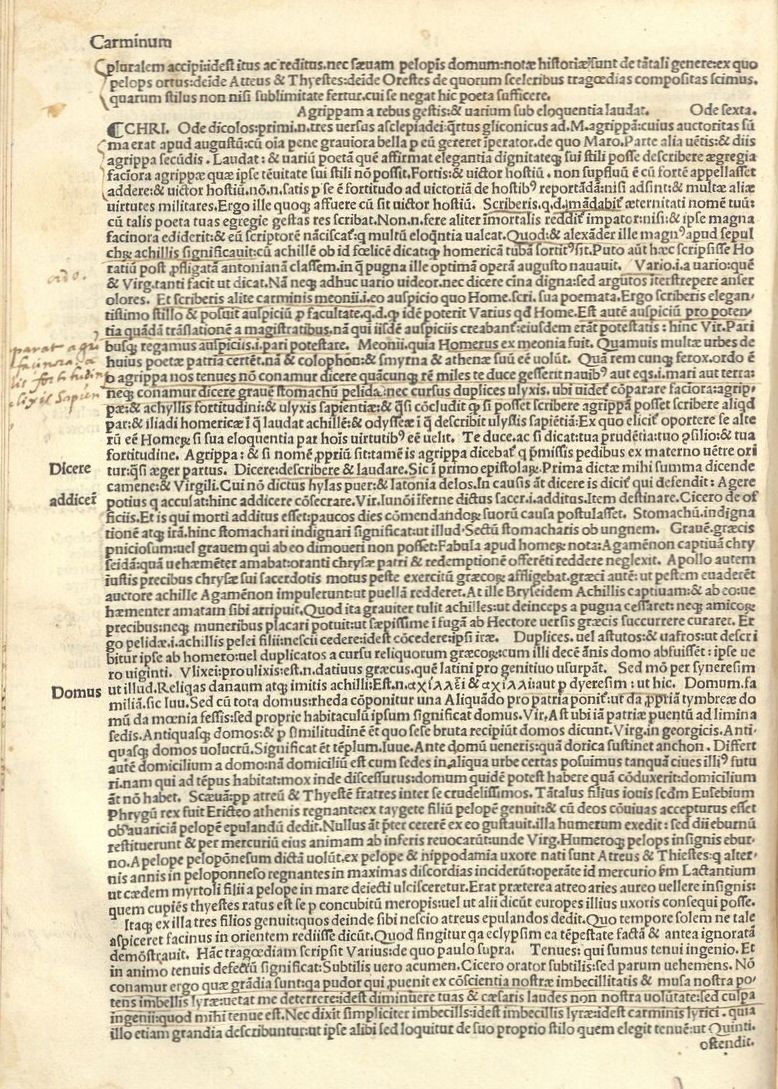 Carminum
pluralem accipi:idest itus ac reditus.nec sæuam pelopis domum:notæ historiæ!sunt de tãtali genere:ex quo
pelops ortus:deïde Atreus & Thyestes:deïde Orestes de quorum sceleribus tragœdias compositas scimus.
quarum stilus non nisi sublimitate fertur.cui se negat hic poeta sufficere.
Agrippam a rebus gestis:& uarium sub eloquentia laudat. Ode sexta.
CHRI. Ode dicolos:primi.n.tres uersus asclepiadei:q̃rtus gliconicus ad.M.agrippã:cuius auctoritas sũ
ma erat apud augustũ:cũ oĩa pene grauiora bella p eũ gereret ĩperator.de quo Maro.Parte alia uẽtis:& diis
agrippa secũdis. Laudat: & uariũ poetã quẽ affirmat elegantia dignitateq; sui stili posse describere ægregia
faciora agrippæ quæ ipse tẽuitate sui stili nõ posset.Fortis:& uictor hostiũ. non supfluũ ẽ cũ fortẽ appellasset
addere:& uictor hostiũ.nõ.n.satis p se ẽ fortitudo ad uictoriã de hostibꝰ reportãdã:nisi adsint:& multæ aliæ
uirtutes militares.Ergo ille quoq; affuere cũ sit uictor hostiũ. Scriberis.q.d.ĩmãdabiť æternitati nomẽ tuũ:
cũ talis poeta tuas egregie gestas res scribat.Non.n.fere aliter ĩmortalis reddiť impator:nisi:& ipse magna
facinora ediderit:& eũ scriptorẽ nãciscať:q multũ eloq̃ntia ualeat.Quod:& alexãder ille magnꝰ apud sepul
chꝝ achillis significauit:cũ achillẽ ob id fœlicẽ dicat:q homericã tubã sortitꝰ sit.Puto aũt hæc scripsisse Ho
ratiũ post ꝓfligatã antonianã classem.in q̃ pugna ille optimã operã augusto nauauit. Vario.i.a uario:quẽ
& Virg.tanti facit ut dicat.Nã neq; adhuc uario uideor.nec dicere cina digna:sed argutos ĩterstrepere anser
olores. Et scriberis alite carminis meonii.i.eo auspicio quo Home.scri.sua poemata.Ergo scriberis elegan-
tissimo stillo & posuit auspiciũ ꝓ facultate.q.d.ꝙ idẽ poterit Varius qď Home.Est autẽ auspiciũ pro poten-
tia quãdã trãslationẽ a magistratibus.nã qui iisdẽ auspiciis creabanť:eiusdem erãt potestatis: hinc Vir.Pari
busq; regamus auspiciis.i.pari potestate. Meonii.quia Homerus ex meonia fuit. Quamuis multæ urbes de
huius poetæ patria certẽt.nã & colophon:& smyrna & athenæ suũ eẽ uolũt. Quã rem cunq; ferox.ordo ẽ
o agrippa nos tenues nõ conamur dicere quãcunq; rẽ miles te duce gesserit nauibꝰ aut eqs.i.mari aut terra:
neq; conamur dicere grauẽ stomachũ pelidæ:nec cursus duplices ulyxis. ubi uideť cõparare faciora:agrip-
pæ:& achyllis fortitudini:& ulyxis sapientiæ:& q̃si cõcludit ꝙ si posset scribere agrippã posset scribere aliqd
par:& iliadi homericæ ĩ q̃ laudat achillẽ:& odysseæ ĩ q̃ describit ulyssis sapiẽtiã:Ex quo eliciť oportere se alte
rũ eẽ Homeꝝ si sua eloquentia par hoĩs uirtutibꝰ eẽ uelit. Te duce.ac si dicat:tua prudẽtia:tuo ꝯsilio:& tua
fortitudine. Agrippa: & si nomẽ,ppriũ sit:tamẽ is agrippa dicebať q p̃missis pedibus ex materno uẽtre ori
tur:q̃si æger partus. Dicere:describere & laudare.Sic ĩ primo epistolaꝝ.Prima dictæ mihi summa dicende
camene:& Virgili.Cui nõ dictus hylas puer:& latonia delos.In causis ãt dicere is diciť qui defendit: Agere
potius q accusat:hinc addicere cõsecrare.Vir.Iunõi ĩferne dictus sacer.i.additus.Item destinare.Cicero de of
ficiis.Et is qui morti additus esset:paucos dies cõmendandoꝝ suorũ causa postulasset. Stomachũ.indigna
tionẽ atq; irã.hinc stomachari indignari significat:ut illud.Sectũ stomacharis ob ungnem. Grauẽ.græcis
pniciosum:uel grauem qui ab eo dimoueri non posset:Fabula apud homeꝝ nota:Agamẽnon captiuã chry
seidã:quã uehæmẽter amabat:oranti chrysæ patri & redemptionẽ offerẽti reddere neglexit. Apollo autem
iustis precibus chrysæ sui sacerdotis motus peste exercitũ græcoꝝ affligebat.græci autẽ:ut pestem euaderẽt
auctore achille Agamẽnon impulerunt:ut puellã redderet.At ille Bryseidem Achillis captiuam:& ab eo:ue
hæmenter amatam sibi arripuit.Quod ita grauiter tulit achilles:ut deinceps a pugna cessaret: neq; amicoꝝ
precibus:neq; muneribus placari potuit:ut sæpissime ĩ fugã ab Hectore uersis græcis succurrere curaret. Er
go pelidæ.i.achillis pelei filii:nescii cedere:idest cõcedere:ipsi iræ. Duplices.uel astutos:& uafros:ut descri
bitur ipse ab homero:uel duplicatos a cursu reliquorum græcoꝝ:cum illi decẽ ãnis domo abfuissẽt: ipse ue
ro uiginti. Vlixei:pro ulixis:est.n.datiuus græcus.quẽ latini pro genitiuo usurpãt. Sed mõ per syneresim
ut illud.Reliq̃as danaum atq; imitis achilli:Est.n.αχίλλεϊ & αχίλλι:aut p dyeresim: ut hic. Domum.fa
miliã.sic Iuu.Sed cũ tota domus:rheda cõponitur una Aliquãdo pro patria poniť:ut da ,ppriã tymbræe do
mũ da mœnia fessis:sed proprie habitaculũ ipsum significat domus.Vir.Ast ubi iã patriæ puentũ ad limina
sedis.Antiquasq; domos:& p similitudinẽ ẽt quo sese bruta recipiũt domos dicunt.Virg.in georgicis.Anti-
quasq; domos uolucrũ.Significat ẽt tẽplum.Iuue.Ante domũ ueneris:quã dorica sustinet anchon. Differt
autẽ domicilium a domo:nã domiciliũ est cum sedes in aliqua urbe certas posuimus tanquã ciues illiꝰ futu
ri.nam qui ad tẽpus habitat:mox inde discessurus:domum quidẽ potest habere quã cõduxerit:domicilium
ãt nõ habet. Scæuã:pp atreũ & Thyestẽ fratres inter se crudelissimos. Tãtalus filius iouis secdm Eusebium
Phrygũ rex fuit Ericteo athenis regnante:ex taygete filiũ pelopẽ genuit:& cũ deos cõuiuas accepturus esset
ob auariciã pelopẽ epulandũ dedit.Nullus ãt p̃ter cererẽ ex eo gustauit.illa humerum exedit: sed dii eburnũ
restituerunt & per mercuriũ eius animam ab inferis reuocarũt:unde Virg.Humeroq; pelops insignis ebur-
no.A pelope pelopõnesum dictã uolũt.ex pelope & hippodamia uxore nati sunt Atreus & Thiestes:q alter-
nis annis in peloponneso regnantes in maximas discordias inciderũt:operãte id mercurio ſm Lactantium
ut cædem myrtoli filii a pelope in mare deiecti ulcisceretur.Erat præterea atreo aries aureo uellere insignis:
quem cupiẽs thyestes ratus est se p concubitũ meropis:uel ut alii dicũt europes illius uxoris consequi posse.
Itaq; ex illa tres filios genuit:quos deinde sibi nescio atreus epulandos dedit.Quo tempore solem ne tale
aspiceret facinus in orientem rediisse dicũt.Quod fingitur qa eclypsim ea tẽpestate factã & antea ignoratã
demõstrauit. Hãc tragœdiam scripsit Varius:de quo paulo supra. Tenues: qui sumus tenui ingenio. Et
in animo tenuis defectũ significat:Subtilis uero acumen.Cicero orator subtilis:sed parum uehemens. Nõ
conamur ergo quæ grãdia sunt:qa pudor qui,puenit ex cõscientia nostræ imbecillitatis & musa nostra po-
tens imbellis lyræ:uetat me deterrere:idest diminuere tuas & cæsaris laudes non nostra uolũtate:sed culpa
ingenii:quod mihi tenue est.Nec dixit simpliciter imbecills:idest imbecillis lyræ:idest carminis lyrici. quia
illo etiam grandia describuntur:ut ipse alibi sed loquitur de suo proprio stilo quem elegit tenuẽ:ut Quinti.
ostendit.
Dicere
addicerť
Domus
ordo.